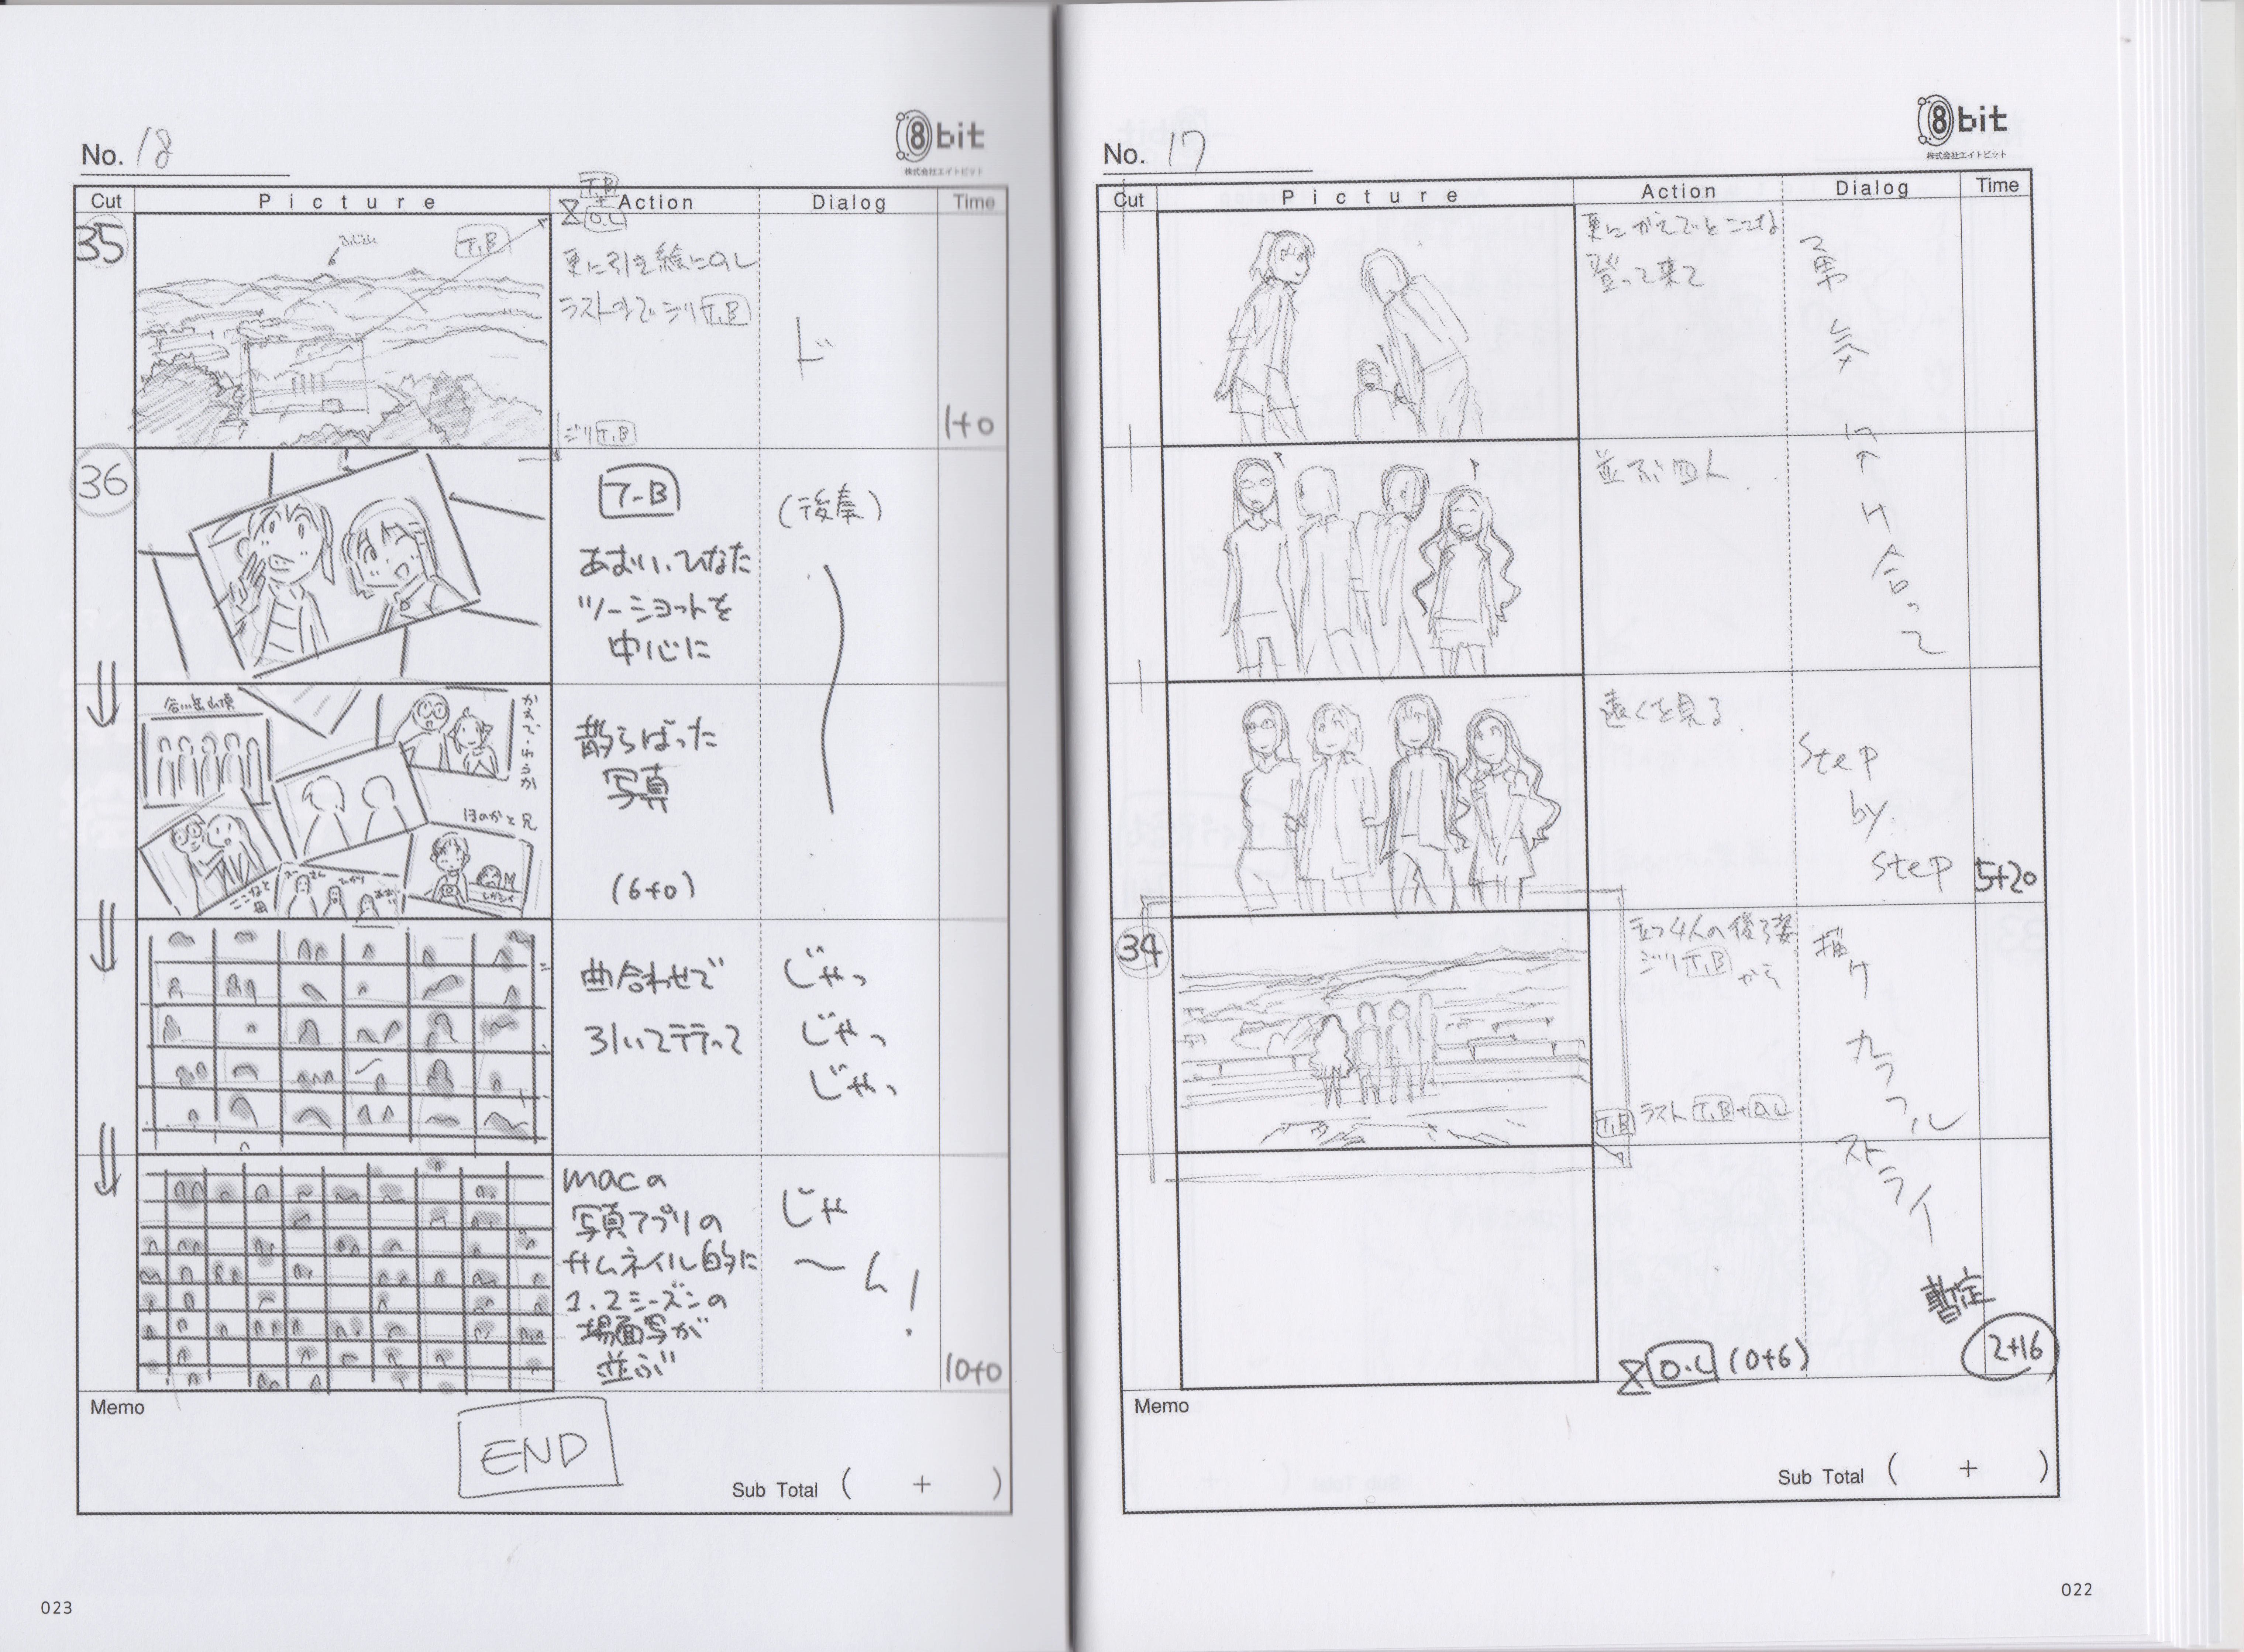 No. 17
8bit
株式会社エイトビット
Cut Picture Action Dialog Time
更にかえでとここな
登って来て
て勇気
並ぶ四人
かけ合って
遠くを見る
step
by
step
5+20
34
立つ4人の後ろ姿
ジリT.B から
描け
カラフル
T.B ラスト T.B+O.L
ストライ
暫定
O.L (0+6)
2+16
Memo
Sub Total ( + )
022
No. 18
8bit
株式会社エイトビット
T.B
+
O.L
Cut Picture Action Dialog Time
35
ふじ山
T.B
更に引き絵にO.L
ラストまでジリT.B
ド
ジリT.B
1+0
36
T-B
(後奏)
あおい、ひなた
ツーショットを
中心に
谷川岳山頂
かえで・ゆうか
ほのかと兄
ここなと
母
ひかり
散らばった
写真
(6+0)
曲合わせで
引いてテテって
じゃっ
じゃっ
じゃっ
macの
写真アプリの
サムネイル的に
1.2シーズンの
場面写が
並ぶ
じゃ
〜ん!
10+0
Memo
END
Sub Total ( + )
023